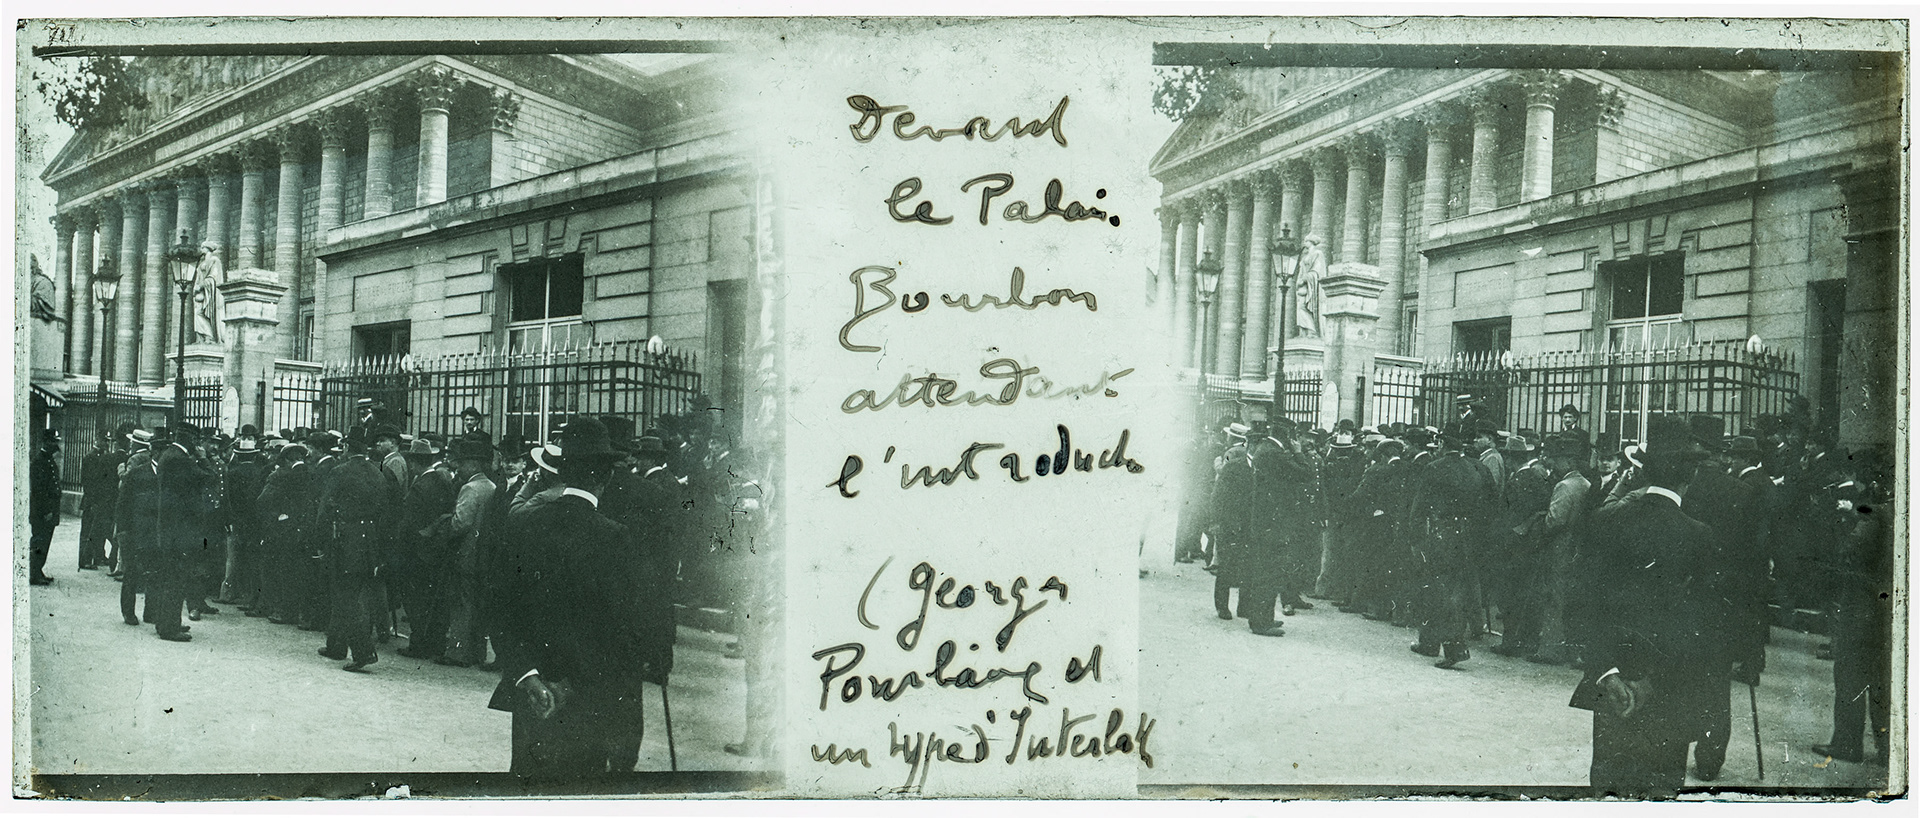 Devand
le Palais
Bourbon
attendant
l'introduct
(Georges
et
un type d'Interlak